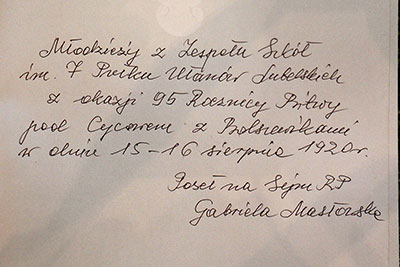 Młodzieży z Zespołu Szkół
im. 7 Pułku Ułanów Lubelskich
z okazji 95 Rocznicy Bitwy
pod Cycowem z Bolszewikami
w dniu 15-16 sierpnia 1920r.
Poseł na Sejm RP
Gabriela Masłowska